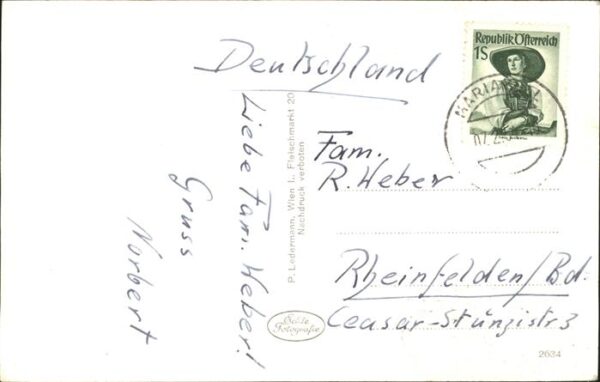 Deutschland
Republik Österreich
1S
Fam.
R. Weber
Rheinfelden/Bd.
Ceasar-Stünzistr 3
Liebe Fam. Weber!
Gruss
Norbert
P. Ledermann, Wien I., Fleischmarkt 20
Nachdruck verboten
Echte
Fotografie
2634